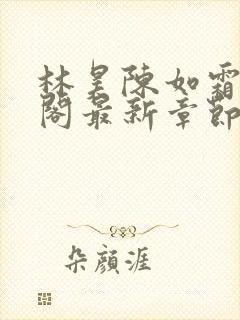 林昊陳如霜
閣最新章節
朵顏涯